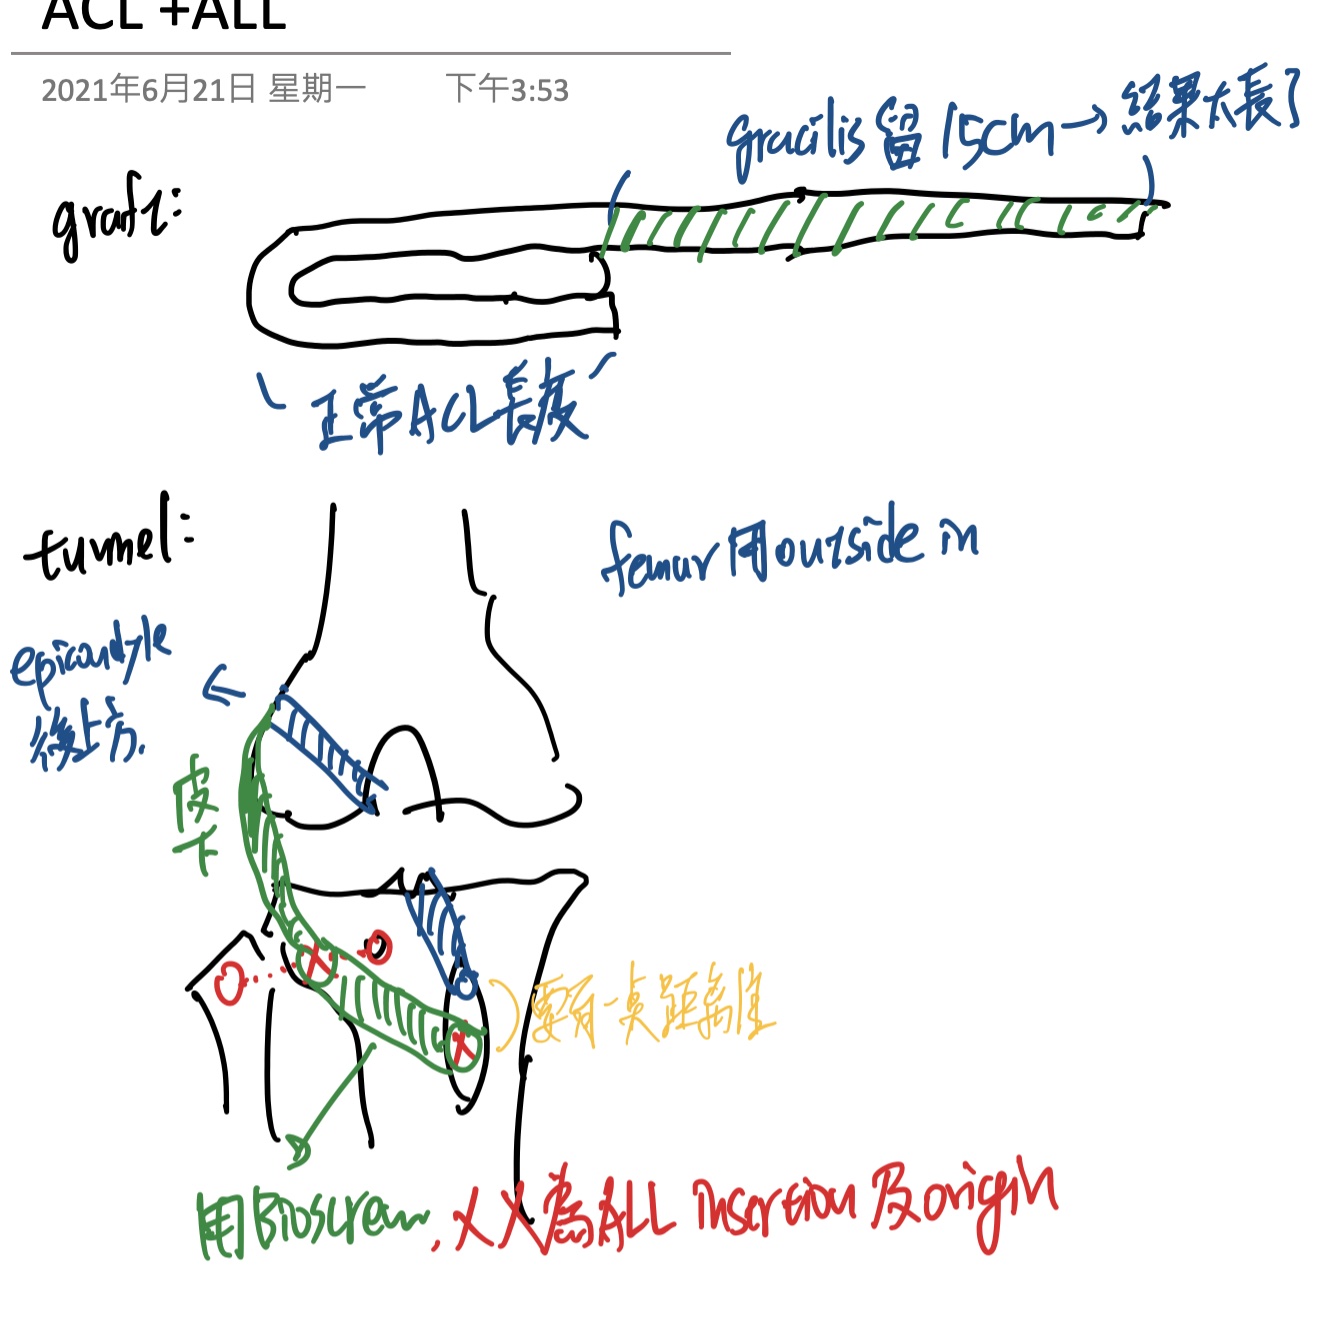 ACL +ALL
2021年6月21日 星期一 下午3:53
gracilis留15cm→結果太長了
graft:
正常ACL長度
tunnel:
femur用outside in
epicondyle
後上方.
皮
下
要有一點距離
用Bioscrew, XX為ALL insertion及origin